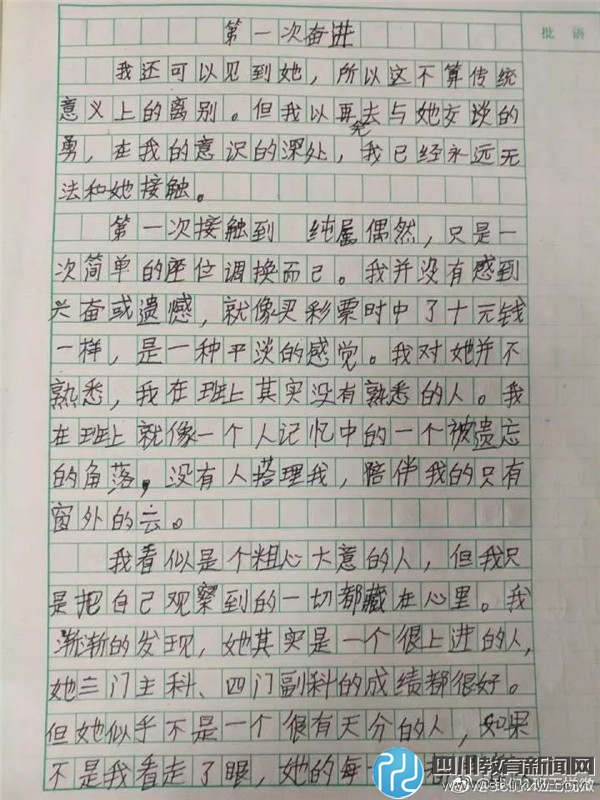 批语
第一次奋进
我还可以见到她，所以这不算传统
意义上的离别。但我以再去与她交谈的
勇，在我的意识的深处，我已经永远无
法和她接触。
第一次接触到 纯属偶然，只是一
次简单的座位调换而已。我并没有感到
兴奋或遗憾，就像买彩票时中了十元钱
一样，是一种平淡的感觉。我对她并不
熟悉，我在班上其实没有熟悉的人。我
在班上就像一个人记忆中的一个被遗忘
的角落，没有人搭理我，陪伴我的只有
窗外的云。
我看似是个粗心大意的人，但我只
是把自己观察到的一切都藏在心里。我
渐渐的发现，她其实是一个很上进的人，
她三门主科、四门副科的成绩都很好。
但她似乎不是一个很有天分的人，如果
不是我看走了眼，她的每
四川教育新闻网